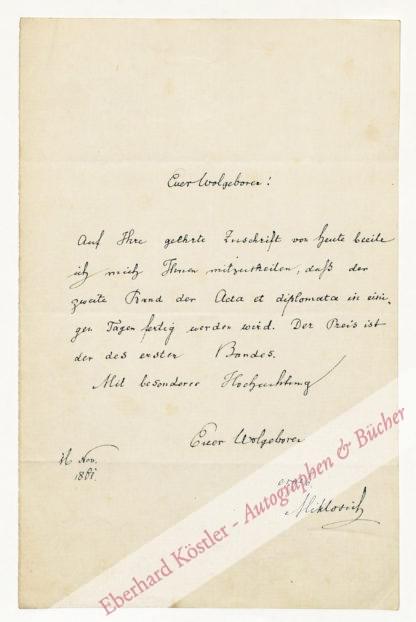 Euer Wolgeboren!
Auf Ihre geehrte Zuschrift von heute beeile
ich mich Ihnen mitzutheilen, daß der
zweite Band der Acta et diplomata in eini-
gen Tagen fertig werden wird. Der Preis ist
der des ersten Bandes.
Mit besonderer Hochachtung
Euer Wolgeboren
Nov.
Miklosich
Eberhard Köstler - Autographen & Bücher